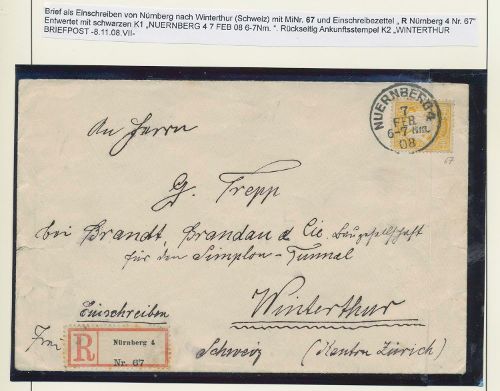 Brief als Einschreiben von Nürnberg nach Winterthur (Schweiz) mit MiNr. 67 und Einschreibezettel „ R Nürnberg 4 Nr. 67"
Entwertet mit schwarzen K1 „NUERNBERG 4 7 FEB 08 6-7Nm. ". Rückseitig Ankunftsstempel K2 „WINTERTHUR
BRIEFPOST -8.11.08.VII-
NUERNBERG 4
7
FEB
6-7 Nm.
08
67
An Herrn
G. Trepp
bei Brandt, Brandau & Cie. Baugesellschaft
für den Simplon-Tunnel
Winterthur
Einschreiben
Schweiz (Kanton Zürich)
R
Nürnberg 4
Nr. 67